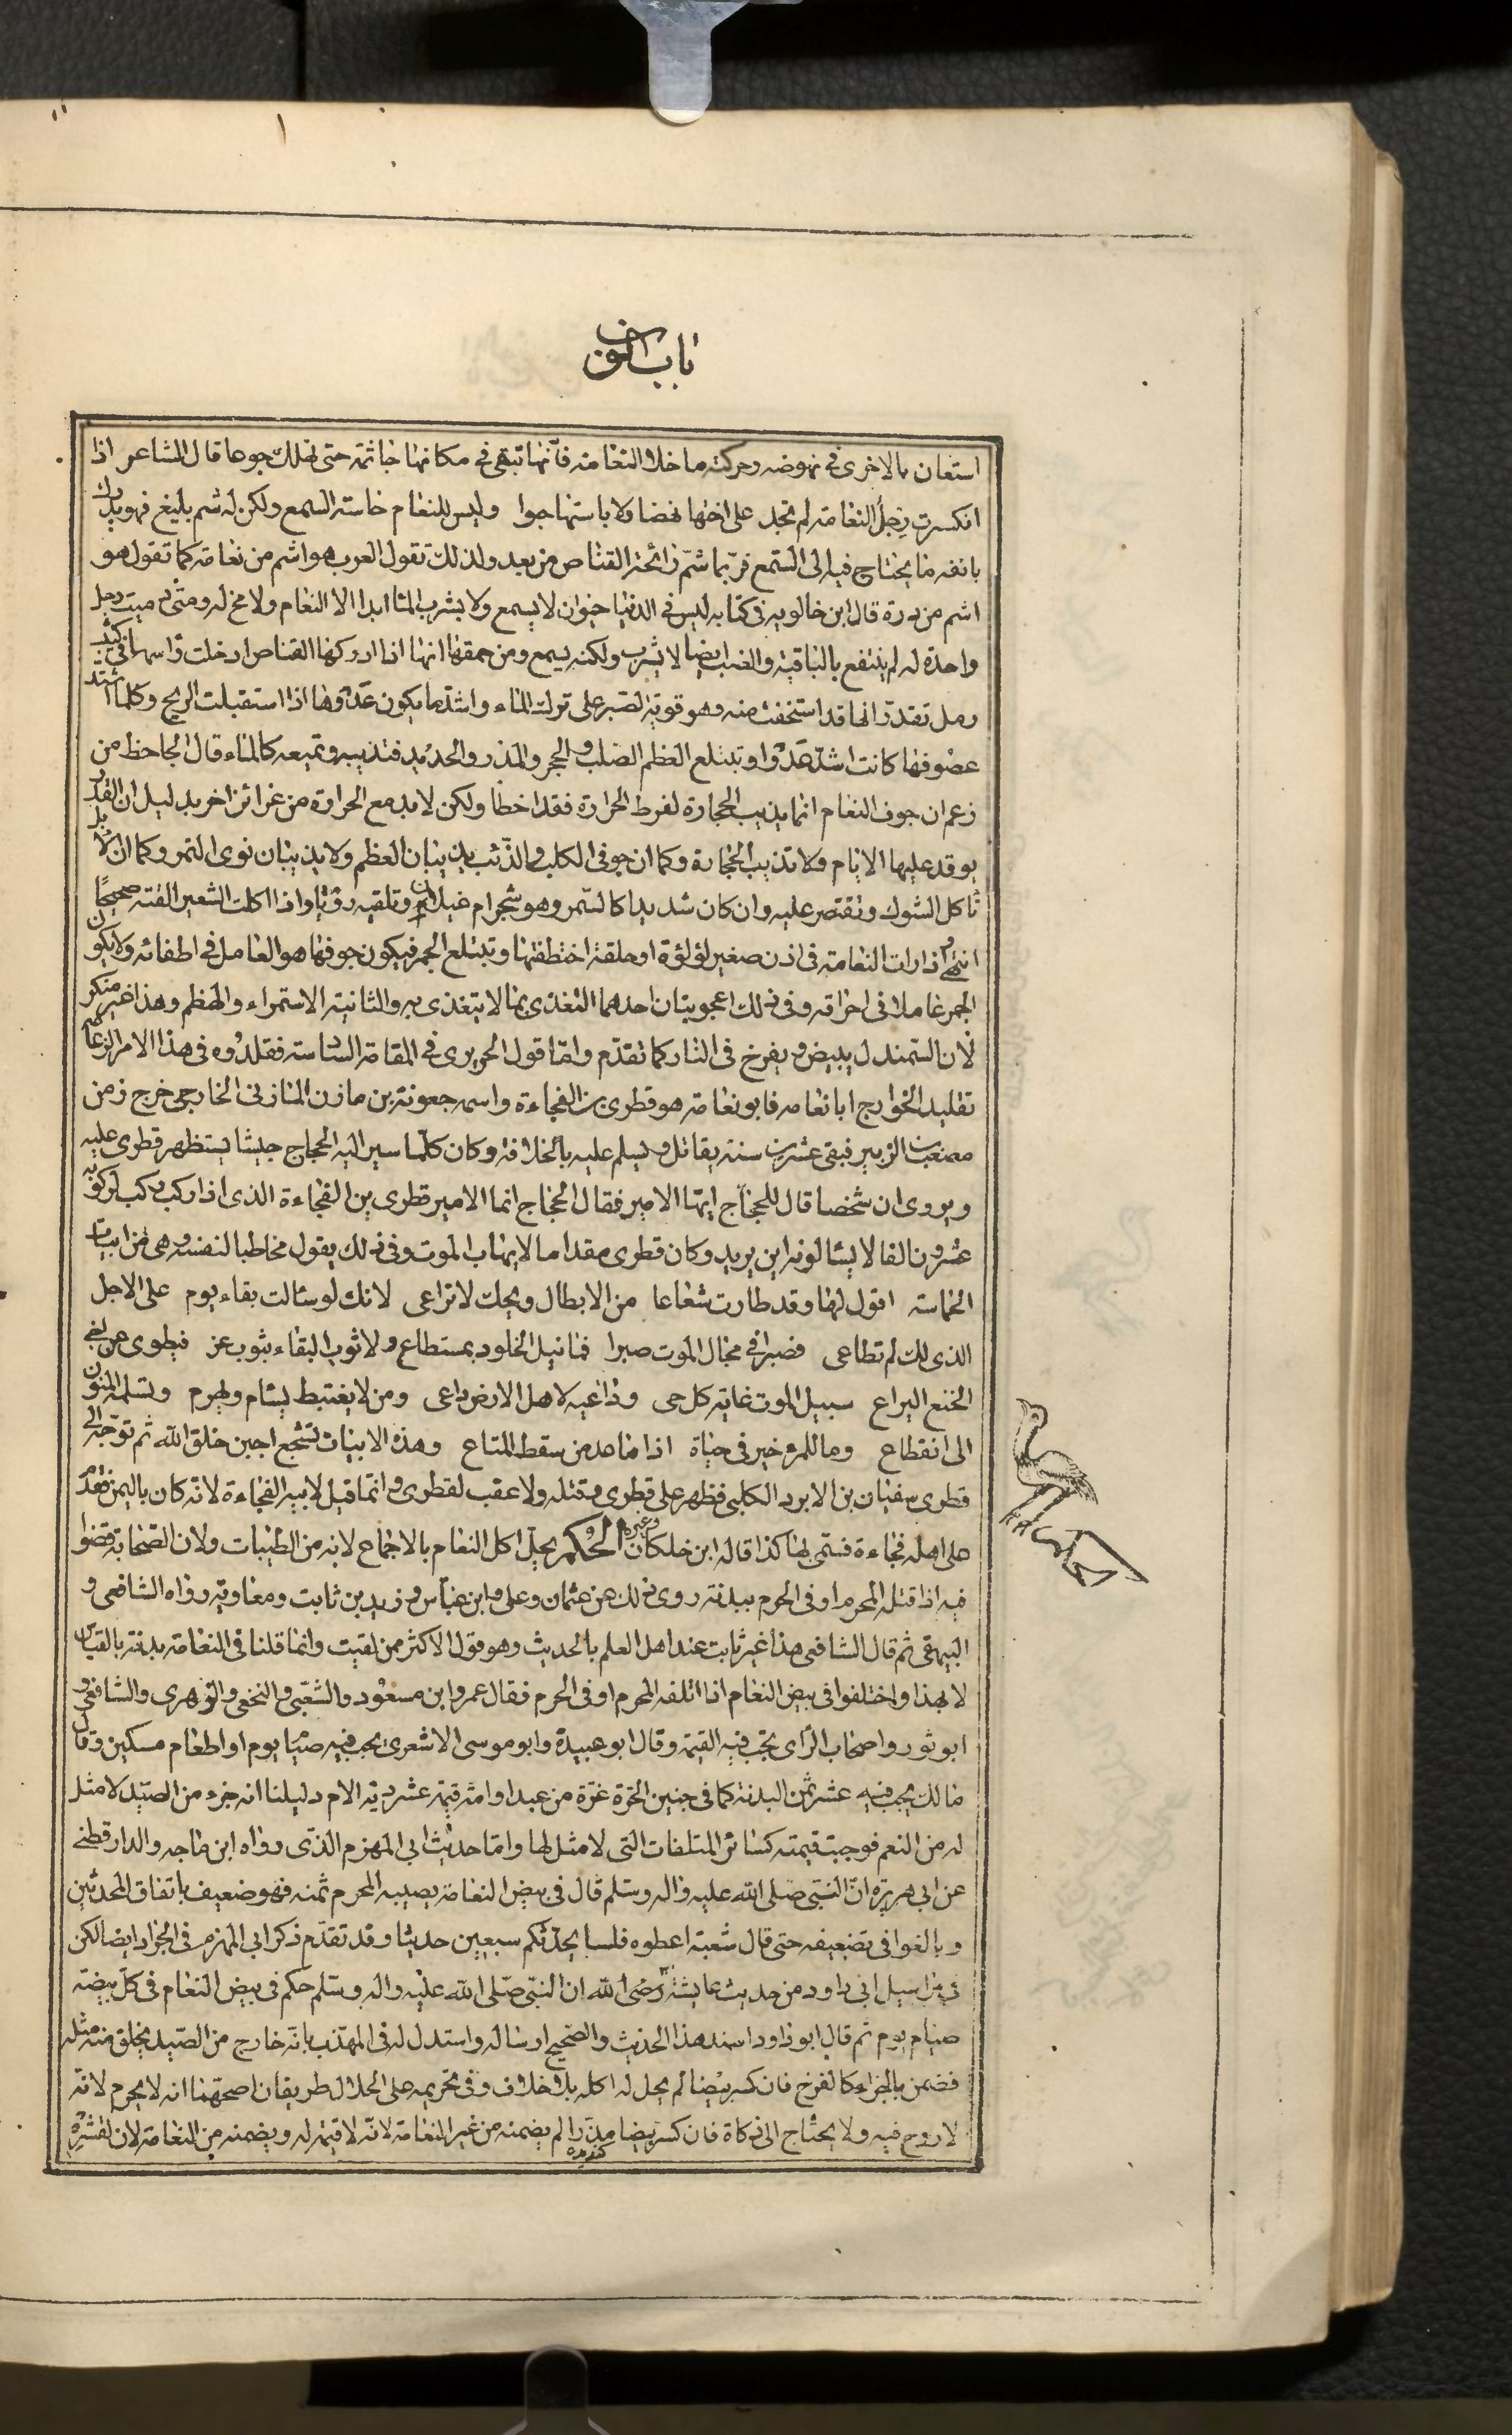 باب النون
استعان بالاخرى في نهوضه وحركته ما خلا النعامة فانها تبقى في مكانها جاثمة حتى تهلك جوعا قال الشاعر اذا
انكسرت رجل النعامة لم تجد على اختها نهضا ولا باستها حبوا وليس للنعام حاسة السمع ولكن له شم بليغ فهو يدرك
بانفه ما يحتاج فيه الى السمع فربما شم رائحة القناص من بعد ولذلك تقول العرب هو اشم من نعامة كما تقول هو
اشم من ذرة قال ابن خالويه في كتابه ليس في الدنيا حيوان لا يسمع ولا يشرب الماء ابدا الا النعام ولا مخ له ومتى دميت رجل
واحدة له لم ينتفع بالباقية والضب ايضا لا يشرب ولكنه يسمع ومن حمقها انها اذا ادركها القناص ادخلت راسها في كثيب
رمل تقدر انها قد استخفت منه وهو قوية الصبر على ترك الماء واشد ما يكون عدوها اذا استقبلت الريح وكلما اشتد
عصوفها كانت اشد عدوا وتبتلع العظم الصلب والحجر والمدر والحديد فتذيبه وتميعه كالماء قال الجاحظ من
زعم ان جوف النعام انما يذيب الحجارة لفرط الحرارة فقد اخطا ولكن لا بد مع الحرارة من غرائز اخر بدليل ان القدر
يوقد عليها الايام ولا تذيب الحجارة وكما ان جوفي الكلب والذئب يذيبان العظم ولا يذيبان نوى التمر وكما ان الابل
تاكل الشوك وتقتصر عليه وان كان شديدا كالسمر وهو شجر ام غيلان وتلقيه روثا واذا اكلت الشعير القته صحيحا
انتهى واذا رات النعامة في اذن صغير لؤلؤة او حلقة اختطفتها وتبتلع الجمر فيكون جوفها هو العامل في اطفائه ولا يكون
الجمر عاملا في احراقه وفي ذلك اعجوبتان احدهما التغذي بما لا يتغذى به والثانية الاستمراء والهظم وهذا غير منكر
لان السمندل يبيض ويفرخ في النار كما تقدم واما قول الحريري في المقامة السادسة فقلدوه في هذا الامر الزعامة
تقليد الخوارج ابا نعامه فابو نعامة هو قطرى بن الفجاءة واسمه جعونة بن مازن المازنى الخارجى خرج زمن
مصعب بن الزبير فبقى عشرين سنة يقاتل ويسلم عليه بالخلافة وكان كلما سير اليه الحجاج جيشا يستظهر قطرى عليه
ويروى ان شخصا قال للحجاج ايها الامير فقال الحجاج انما الامير قطرى بن الفجاءة الذى اذا ركب ركب لركوبه
عشرون الفا لا يسالونه اين يريد وكان قطرى مقداما لا يهاب الموت وفي ذلك يقول مخاطبا لنفسه وهى من ابيات
الحماسة اقول لها وقد طارت شعاعا من الابطال ويحك لا تراعى لانك لو سئالت بقاء يوم على الاجل
الذى لك لم تطاعى فصبرا في مجال الموت صبرا فما نيل الخلود بمستطاع ولا ثوب البقاء بثوب عز فيطوى عن اخى
الخنع اليراع سبيل الموت غاية كل حى وداعيه لاهل الارض داعى ومن لا يغتبط يسام ويهرم وتسلمه المنون
الى انقطاع وما للمرء خير في حياة اذا ما عد من سقط المتاع وهذه الابيات تشجع اجبن خلق الله ثم توجه الى
قطرى سفيان بن الابرد الكلبى فظهر على قطرى وقتله ولا عقب لقطرى وانما قيل لابيه الفجاءة لانه كان باليمن فقدم
على اهله فجاءة فسمى بها كذا قاله ابن خلكان وغيره الحكم يحل اكل النعام بالاجماع لانه من الطيبات ولان الصحابة قضوا
فيه اذا قتله المحرم او في الحرم ببدنة روى ذلك عن عثمان وعلى وابن عباس وزيد بن ثابت ومعاوية رواه الشافعى و
البيهقى ثم قال الشافعى هذا غير ثابت عند اهل العلم بالحديث وهو قول الاكثر ممن لقيت وانما قلنا في النعامة بدنة بالقياس
لا بهذا واختلفوا في بيض النعام اذا اتلفه المحرم او في الحرم فقال عمر وابن مسعود والشعبى والنخعى والزهرى والشافعى و
ابو ثور واصحاب الراى يجب فيه القيمة وقال ابو عبيدة وابو موسى الاشعرى يجب فيه صيام يوم او اطعام مسكين وقال
مالك يجب فيه عشر ثمن البدنة كما في جنين الحرة غرة من عبد او امة قيمة عشر دية الام دليلنا انه جزء من الصيد لا مثل
له من النعم فوجبت قيمته كسائر المتلفات التى لا مثل لها واما حديث ابى المهزم الذى رواه ابن ماجه والدارقطنى
عن ابى هريرة ان النبى صلى الله عليه واله وسلم قال في بيض النعامة يصيبه المحرم ثمنه فهو ضعيف باتفاق المحدثين
وبالغوا في تضعيفه حتى قال شعبة اعطوه فلسا يحدثكم سبعين حديثا وقد تقدم ذكر ابى المهزم في الجراد ايضا لكن
في مراسيل ابى داود من حديث عايشة رضى الله ان النبى صلى الله عليه واله وسلم حكم في بيض النعام في كل بيضة
صيام يوم ثم قال ابو داود اسند هذا الحديث والصحيح ارساله واستدل له في المهذب بانه خارج من الصيد يخلق منه مثله
فضمن بالجزاء كالفرخ فان كسر بيضا لم يحل له اكله بلا خلاف وفي تحريمه على الحلال طريقان اصحهما انه لا يحرم لانه
لا روح فيه ولا يحتاج الى ذكاة فان كسر بيضا مدرا لم يضمنه من غير النعامة لانه لا قيمة له ويضمنه من النعامة لان لقشره